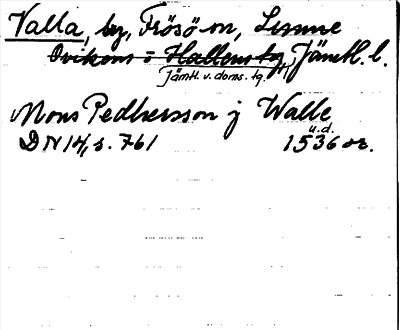 Valla, by, Frösö sn, Sunne
Ovikens o Hallens tg, Jämtl. l.
Jämtl. v. doms. tg.
Mons Pedhersson j Walle
u.d.
DN 14, s. 761 1536 or.